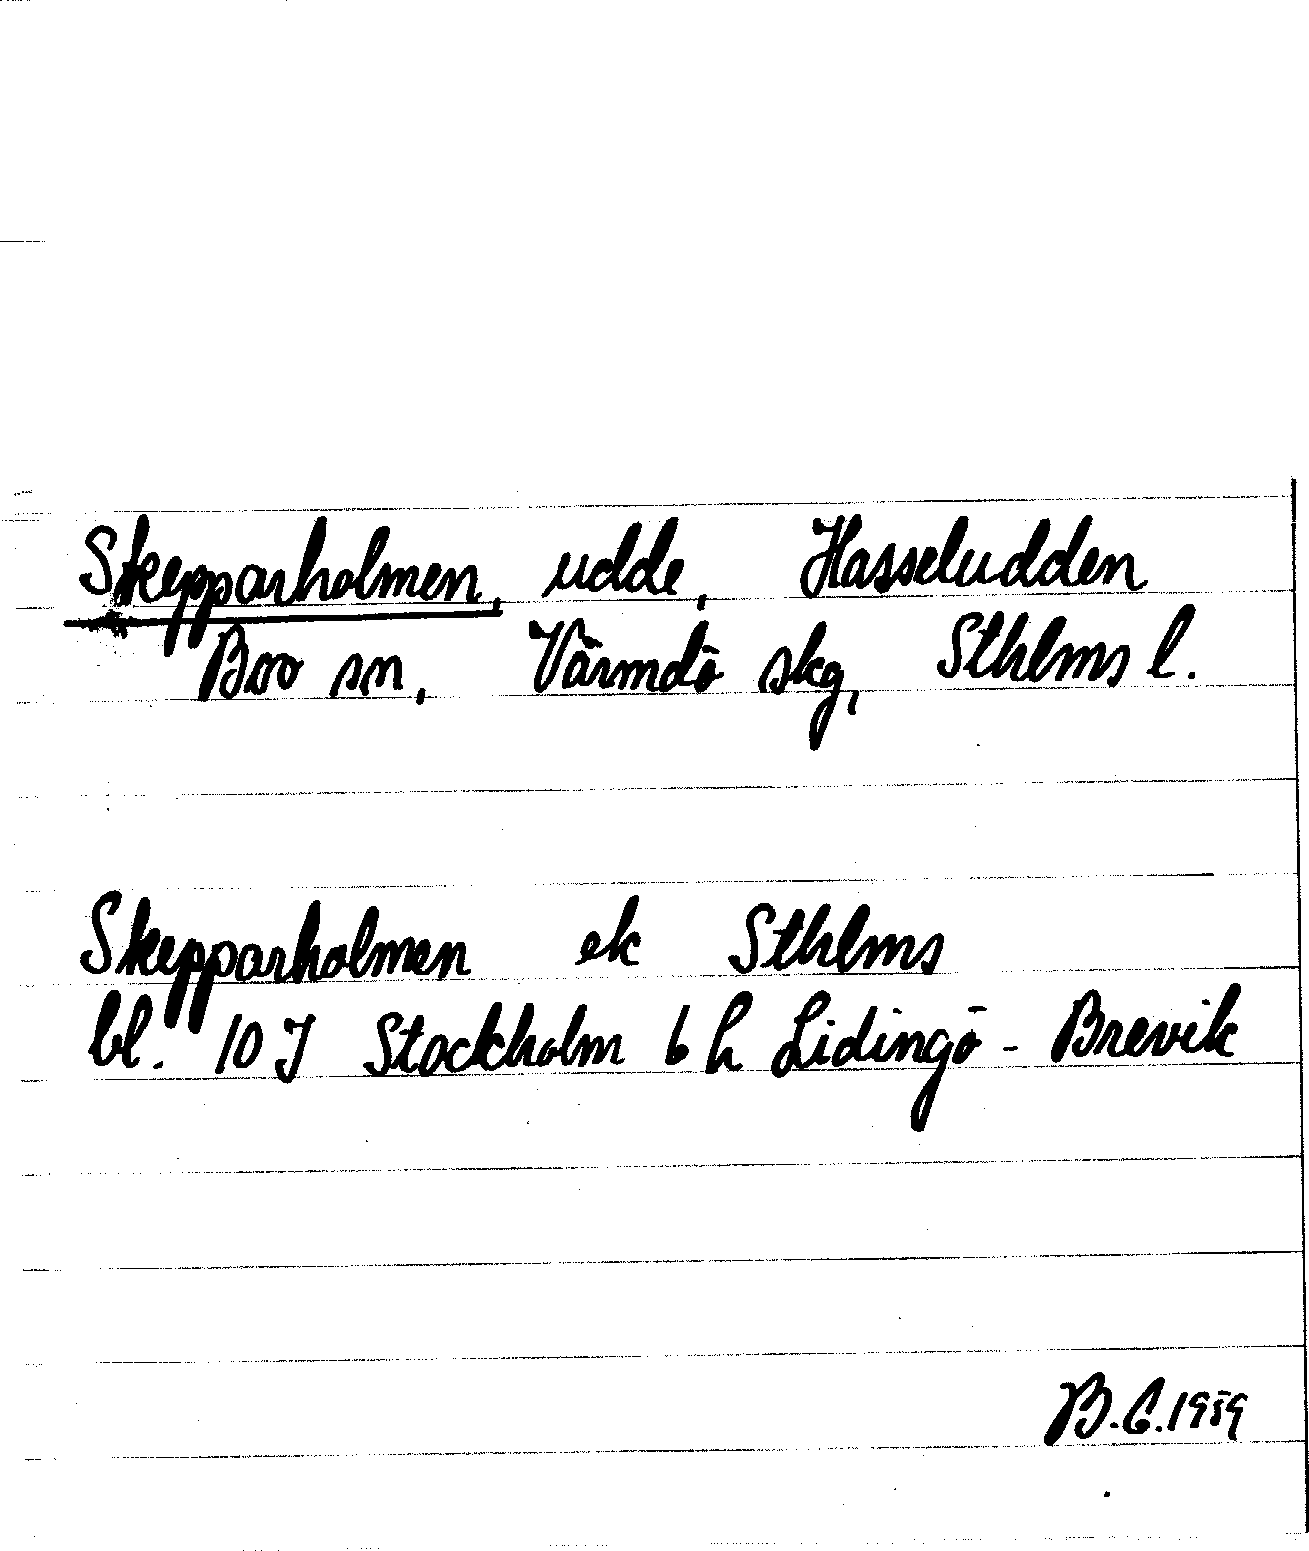 Skepparholmen, udde, Hasseludden
Boo sn, Värmdö skg, Sthlms l.
Skepparholmen ek Sthlms
bl. 10 J Stockholm 6 h Lidingö - Brevik
B.C. 1959